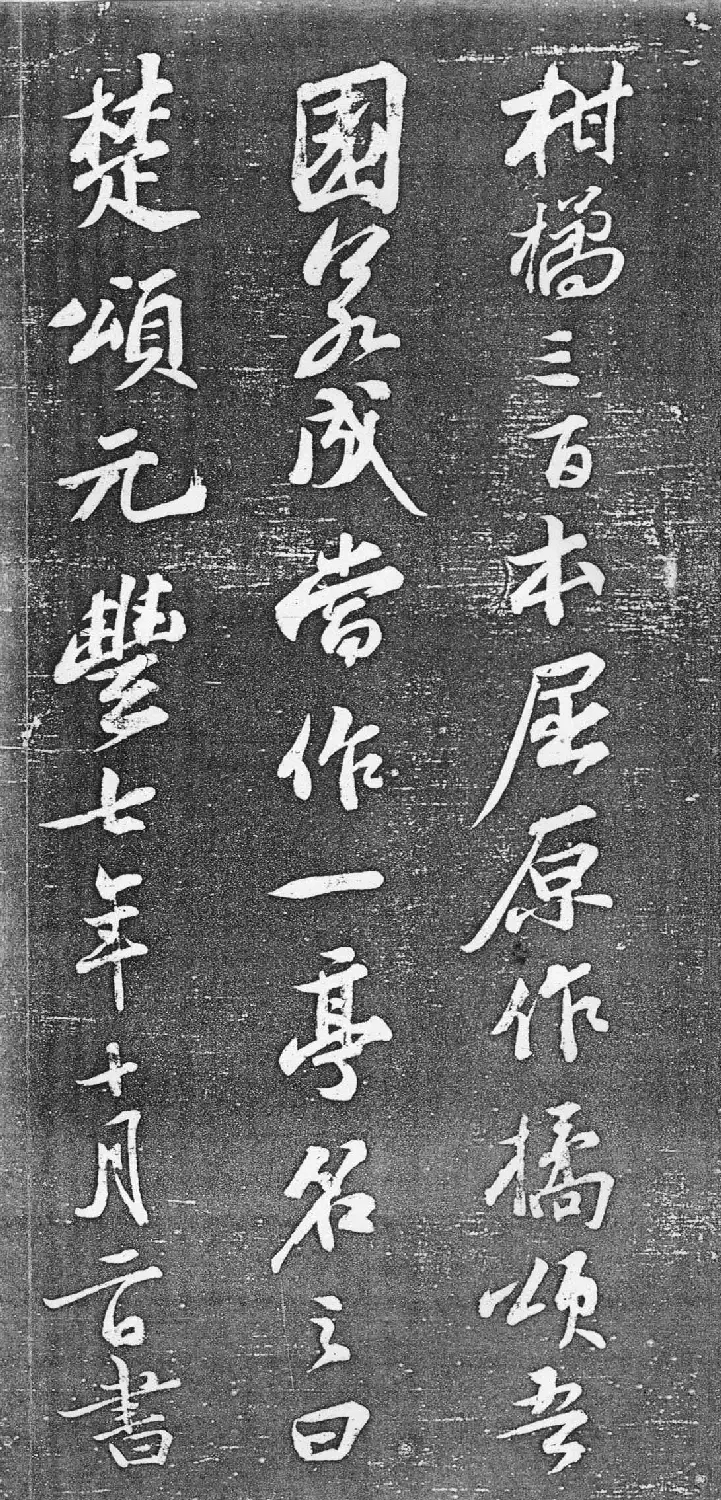 柑橘三百本屈原作橘頌吾
園若成當作一亭名之曰
楚頌元豐七年十月二日書